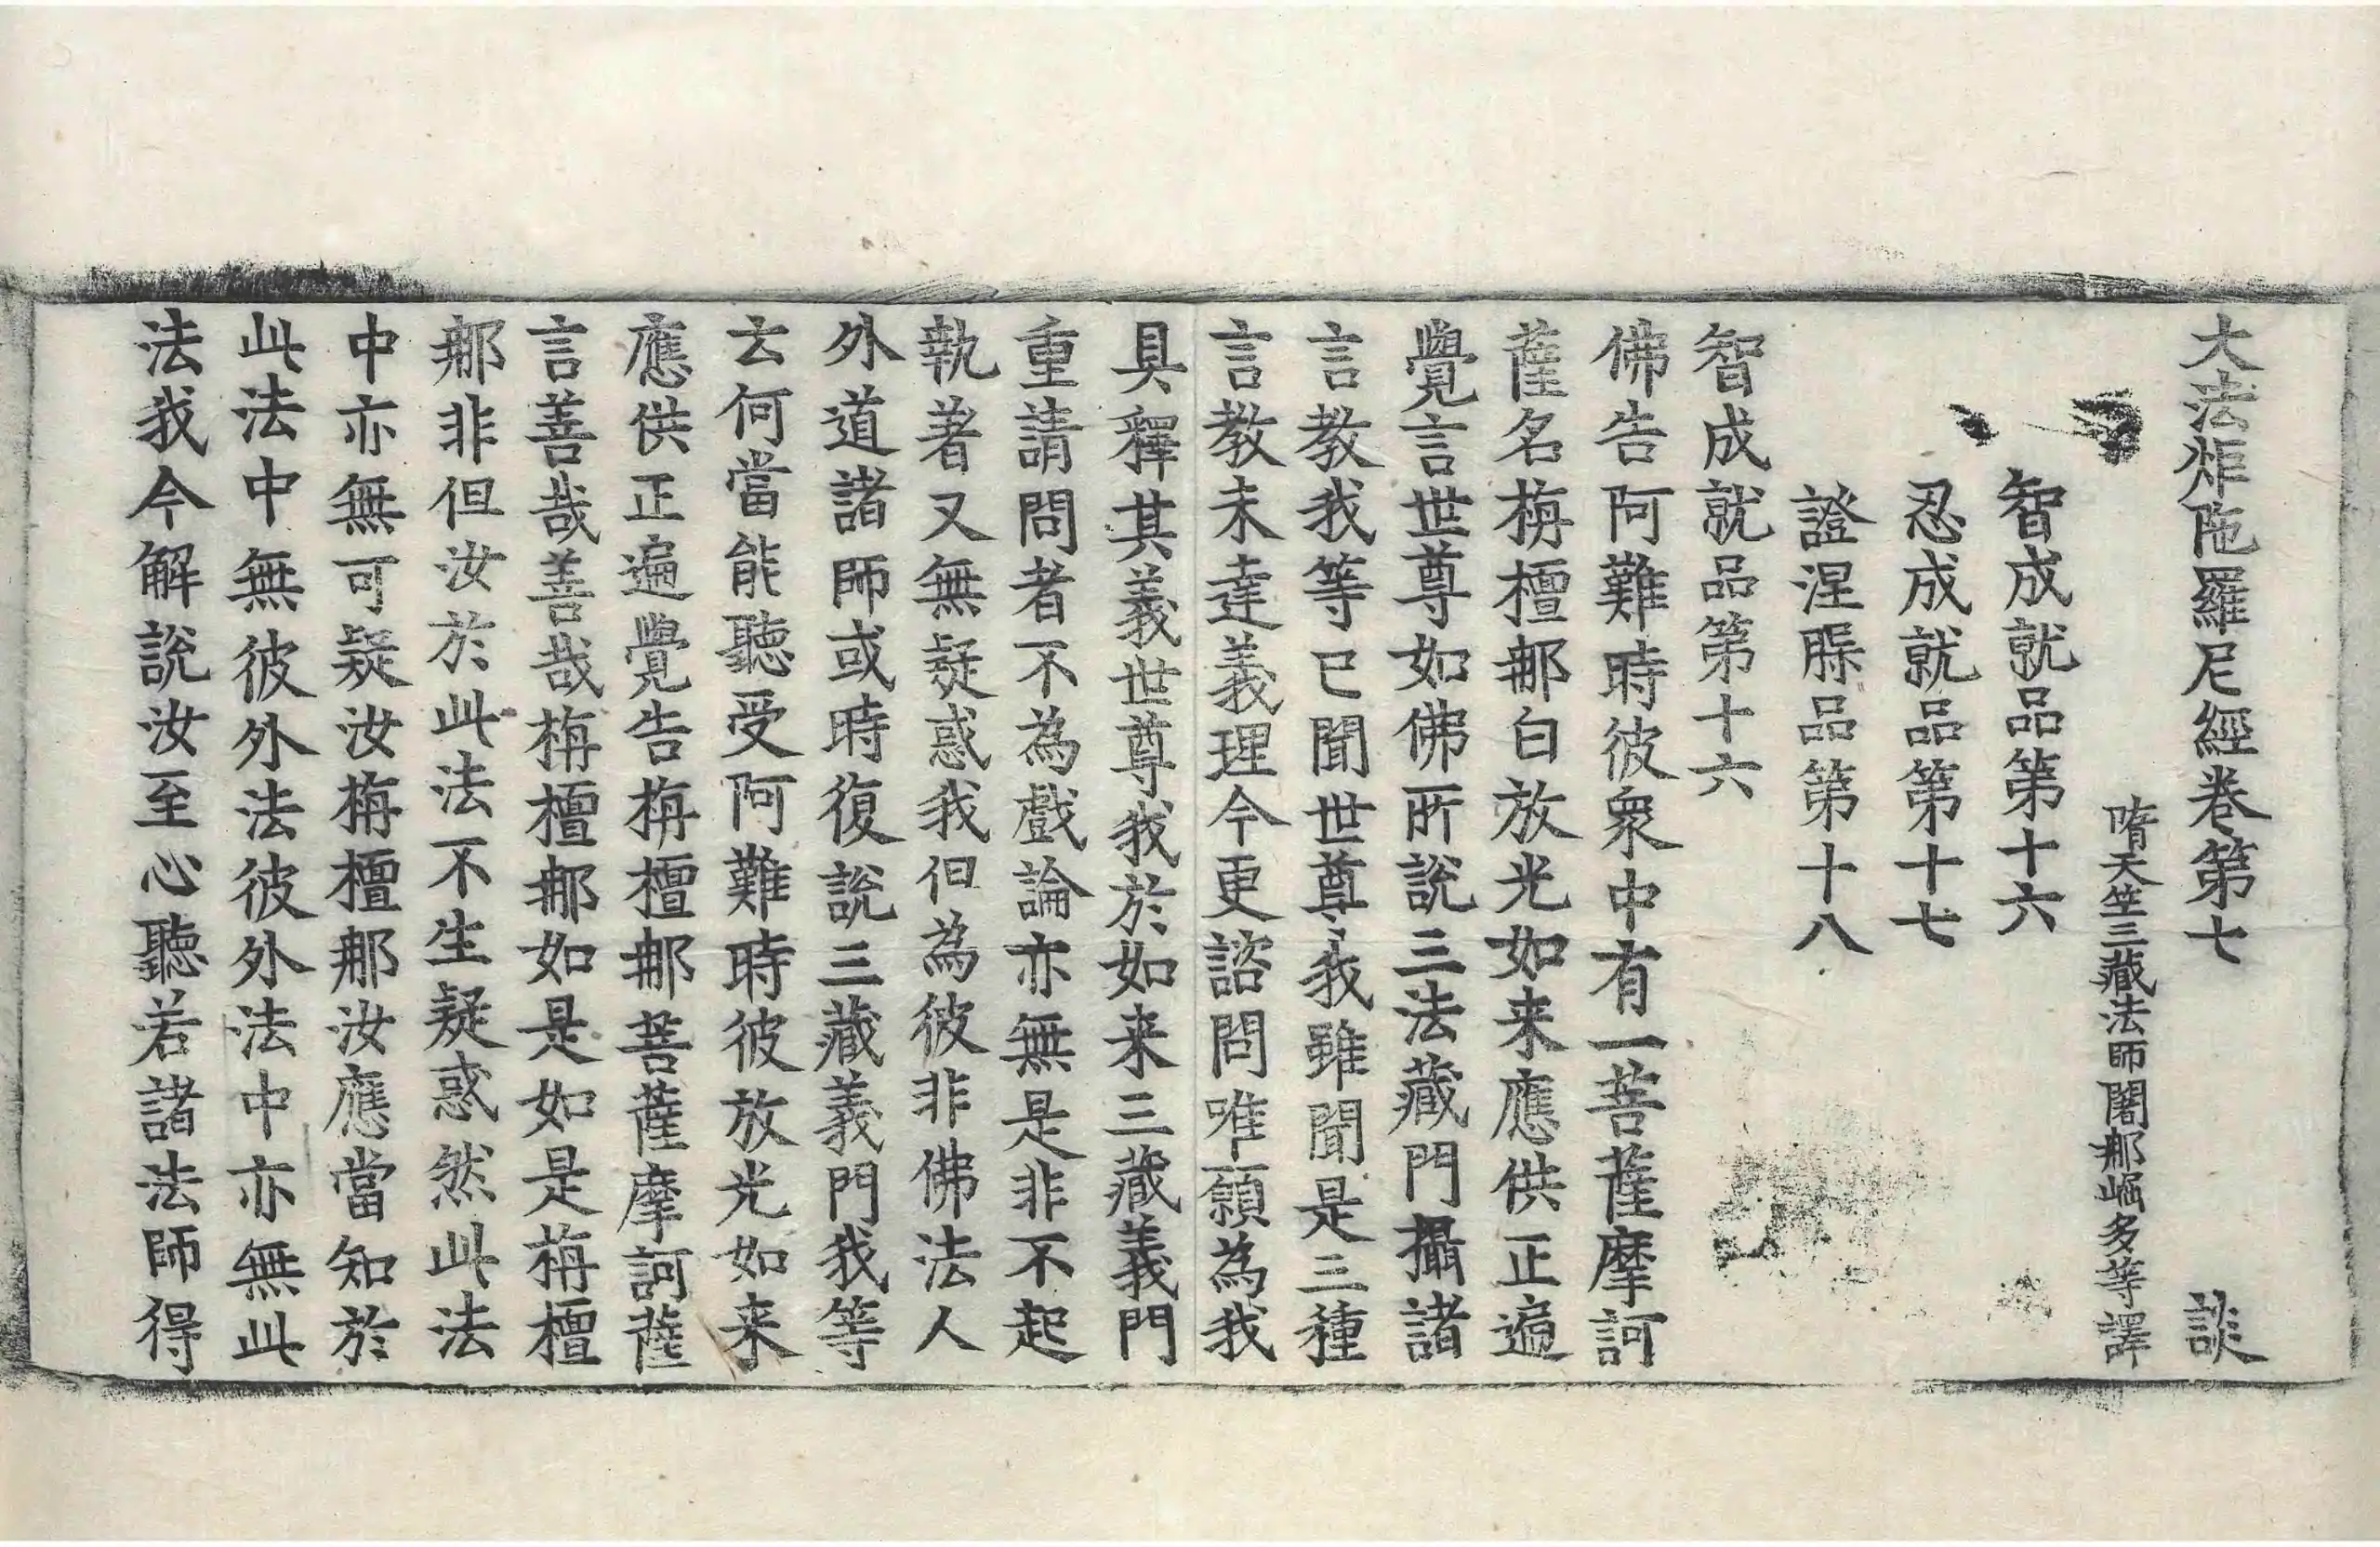 大法炬陁羅尼經卷第七　談
隋天竺三藏法師闍那崛多等譯
智成就品第十六
忍成就品第十七
證涅槃品第十八
智成就品第十六
佛告阿難時彼衆中有一菩薩摩訶
薩名栴檀那白放光如来應供正遍
覺言世尊如佛所説三法藏門攝諸
言教我等已聞世尊我雖聞是三種
言教未達義理今更諮問唯願為我
具釋其義世尊我於如来三藏義門
重請問者不為戲論亦無是非不起
執著又無疑惑我但為彼非佛法人
外道諸師或時復説三藏義門我等
云何當能聽受阿難時彼放光如来
應供正遍覺告栴檀那菩薩摩訶薩
言善哉善哉栴檀那如是如是栴檀
那非但汝於此法不生疑惑然此法
中亦無可疑汝栴檀那汝應當知於
此法中無彼外法彼外法中亦無此
法我今解説汝至心聽若諸法師得